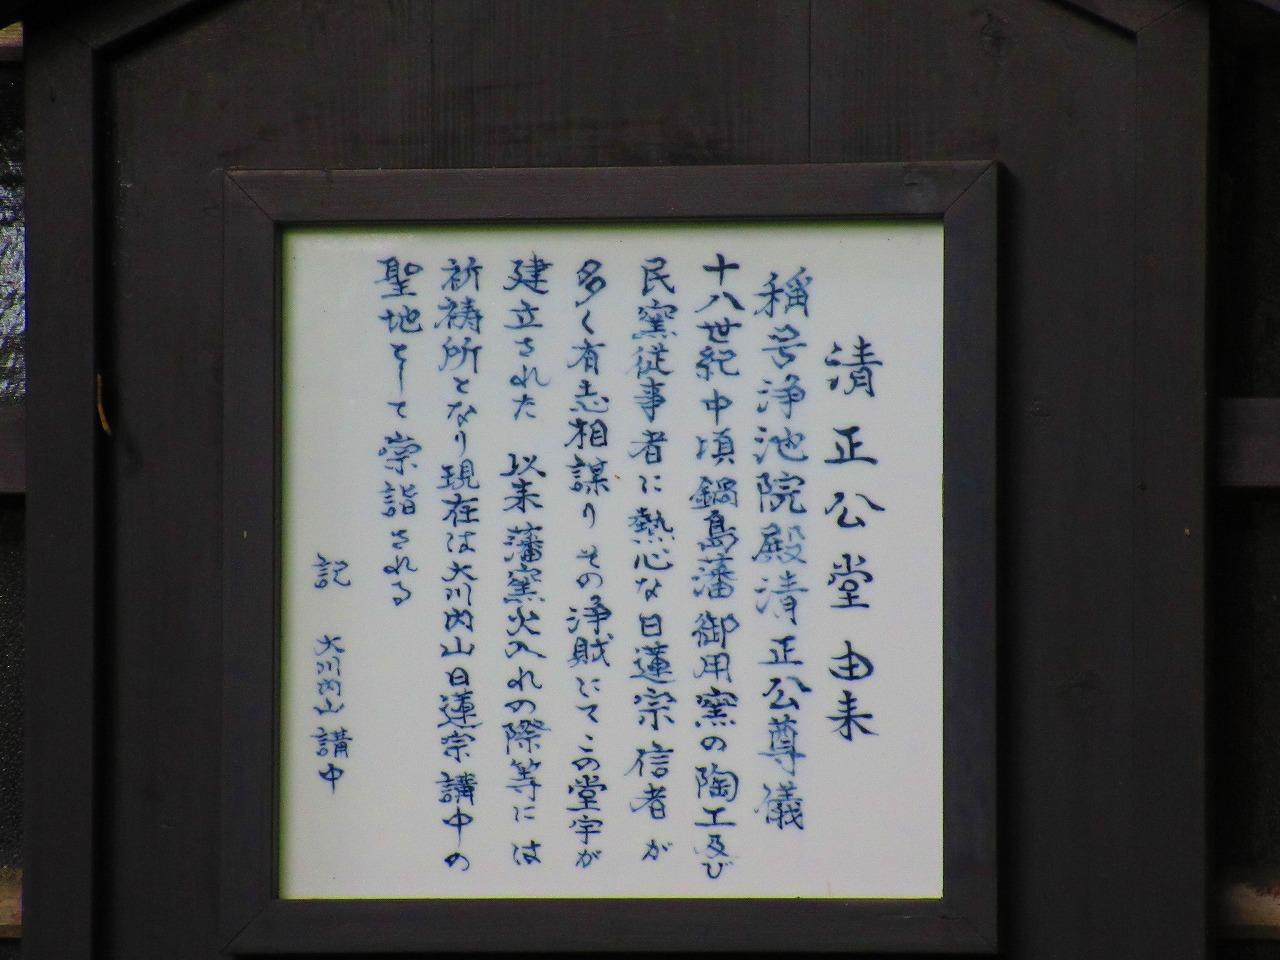 清正公堂由来
稱号浄池院殿清正公尊儀
十八世紀中頃鍋島藩御用窯の陶工及び
民窯従事者に熱心な日蓮宗信者が
多く有志相謀りその浄財にてこの堂宇が
建立された 以来藩窯火入れの際等には
祈祷所となり現在は大川内山日蓮宗講中の
聖地として崇詣される
記 大川内山講中